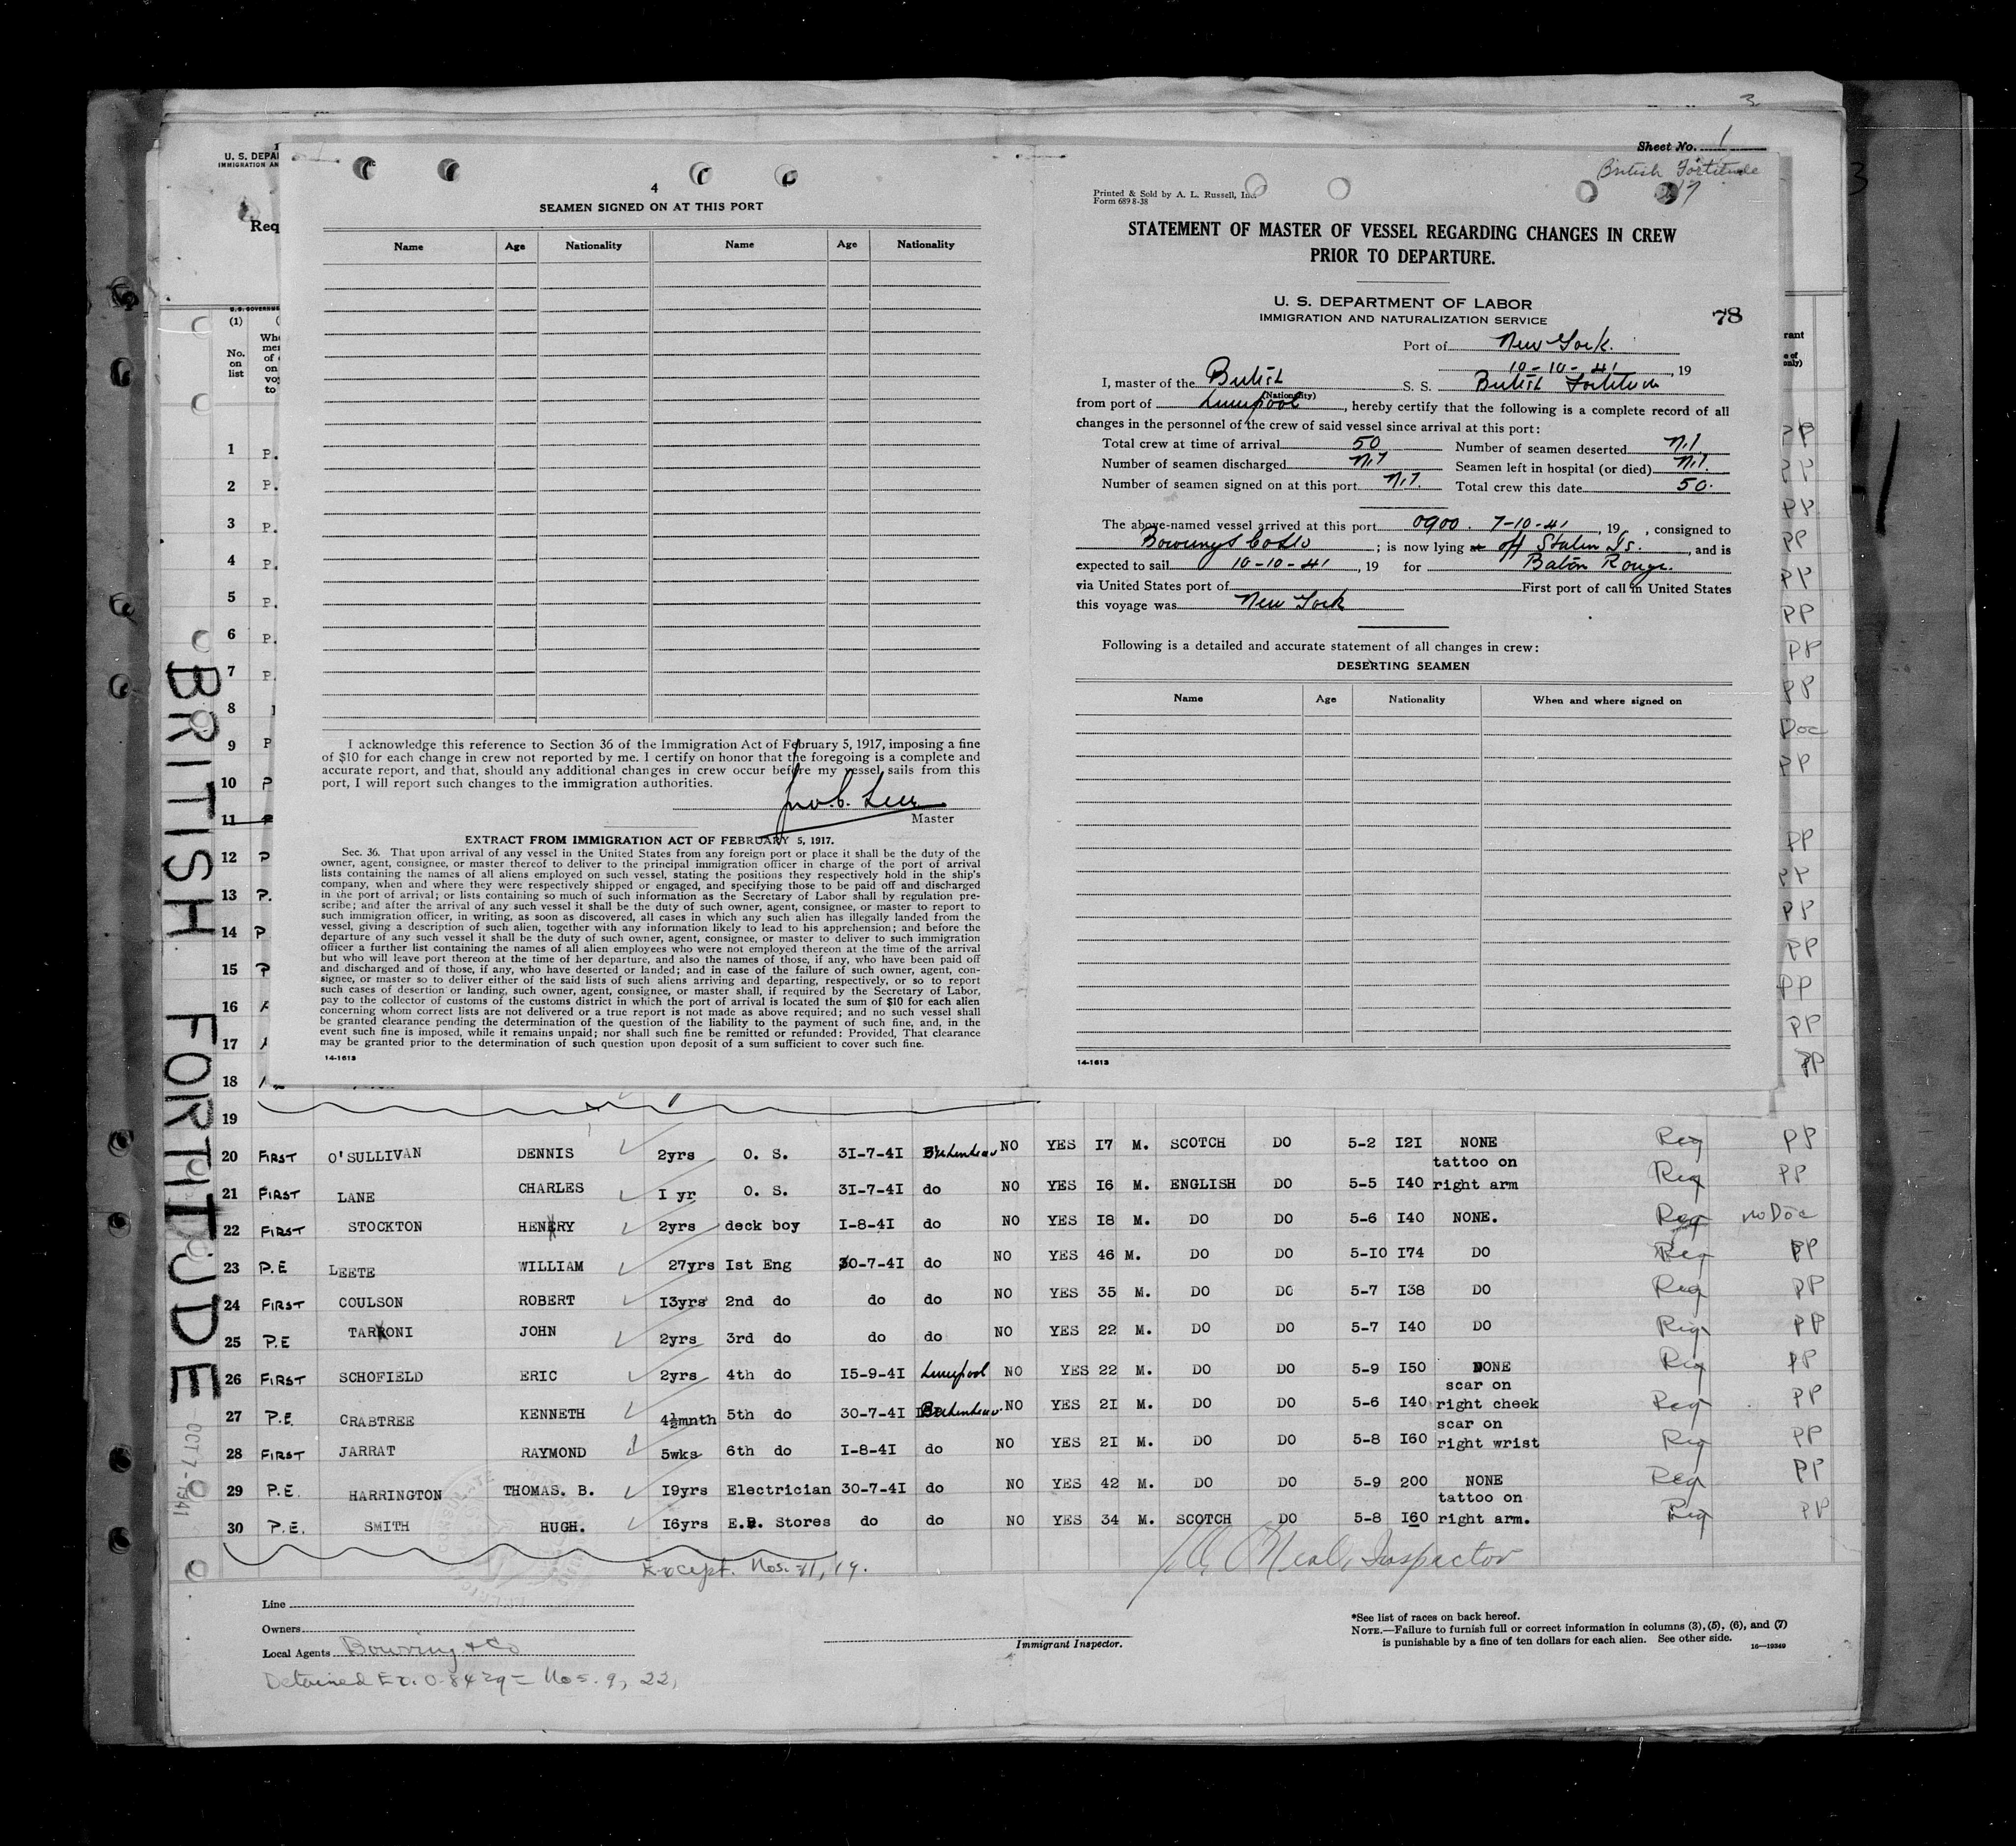 3
Sheet No. 1
British Fortitude
U. S. DEPA
IMMIGRATION AN
Req
(1)
No.
on
list
4
SEAMEN SIGNED ON AT THIS PORT
Name Age Nationality Name Age Nationality
I acknowledge this reference to Section 36 of the Immigration Act of February 5, 1917, imposing a fine
of $10 for each change in crew not reported by me. I certify on honor that the foregoing is a complete and
accurate report, and that, should any additional changes in crew occur before my vessel sails from this
port, I will report such changes to the immigration authorities.
Master
EXTRACT FROM IMMIGRATION ACT OF FEBRUARY 5, 1917.
Sec. 36. That upon arrival of any vessel in the United States from any foreign port or place it shall be the duty of the
owner, agent, consignee, or master thereof to deliver to the principal immigration officer in charge of the port of arrival
lists containing the names of all aliens employed on such vessel, stating the positions they respectively hold in the ship's
company, when and where they were respectively shipped or engaged, and specifying those to be paid off and discharged
in the port of arrival; or lists containing so much of such information as the Secretary of Labor shall by regulation pre-
scribe; and after the arrival of any such vessel it shall be the duty of such owner, agent, consignee, or master to report to
such immigration officer, in writing, as soon as discovered, all cases in which any such alien has illegally landed from the
vessel, giving a description of such alien, together with any information likely to lead to his apprehension; and before the
departure of any such vessel it shall be the duty of such owner, agent, consignee, or master to deliver to such immigration
officer a further list containing the names of all alien employees who were not employed thereon at the time of the arrival
but who will leave port thereon at the time of her departure, and also the names of those, if any, who have been paid off
and discharged and of those, if any, who have deserted or landed; and in case of the failure of such owner, agent, con-
signee, or master so to deliver either of the said lists of such aliens arriving and departing, respectively, or so to report
such cases of desertion or landing, such owner, agent, consignee, or master shall, if required by the Secretary of Labor,
pay to the collector of customs of the customs district in which the port of arrival is located the sum of $10 for each alien
concerning whom correct lists are not delivered or a true report is not made as above required; and no such vessel shall
be granted clearance pending the determination of the question of the liability to the payment of such fine, and, in the
event such fine is imposed, while it remains unpaid; nor shall such fine be remitted or refunded: Provided, That clearance
may be granted prior to the determination of such question upon deposit of a sum sufficient to cover such fine.
14-1613
Printed & Sold by A. L. Russell, Inc.
Form 689 8-38
STATEMENT OF MASTER OF VESSEL REGARDING CHANGES IN CREW
PRIOR TO DEPARTURE.
U. S. DEPARTMENT OF LABOR
IMMIGRATION AND NATURALIZATION SERVICE
78
Port of New York.
10-10-41, 19
I, master of the British S. S. British Fortitude
(Nationality)
from port of Liverpool, hereby certify that the following is a complete record of all
changes in the personnel of the crew of said vessel since arrival at this port:
Total crew at time of arrival 50 Number of seamen deserted Nil
Number of seamen discharged Nil Seamen left in hospital (or died) Nil.
Number of seamen signed on at this port Nil. Total crew this date 50.
The above-named vessel arrived at this port 0900. 7-10-41, 19 , consigned to
; is now lying at off Staten Is., and is
expected to sail 10-10-41, 19 for Baton Rouge.
via United States port of First port of call in United States
this voyage was New York
Following is a detailed and accurate statement of all changes in crew:
DESERTING SEAMEN
Name Age Nationality When and where signed on
14-1613
BRITISH FORTITUDE
OCT 7-1941
1 P. PP
2 P. PP
3 P. PP
4 P. PP
5 P. PP
6 P. PP
7 P. PP
8 PP
9 P Doc
10 P PP
11 P
12 P PP
13 P. PP
14 P PP
15 P PP
16 A PP
17 PP
18 PP
19
20 FIRST O'SULLIVAN DENNIS 2yrs O. S. 31-7-41 Birkenhead NO YES 17 M. SCOTCH DO 5-2 121 NONE Reg PP
21 FIRST LANE CHARLES 1 yr O. S. 31-7-41 do NO YES 16 M. ENGLISH DO 5-5 140 tattoo on right arm Reg PP
22 FIRST STOCKTON HENRY 2yrs deck boy 1-8-41 do NO YES 18 M. DO DO 5-6 140 NONE. Reg no Doc
23 P.E LEETE WILLIAM 27yrs Ist Eng 30-7-41 do NO YES 46 M. DO DO 5-10 174 DO Reg PP
24 FIRST COULSON ROBERT 13yrs 2nd do do do NO YES 35 M. DO DO 5-7 138 DO Reg PP
25 P.E TARRONI JOHN 2yrs 3rd do do do NO YES 22 M. DO DO 5-7 140 DO Reg PP
26 FIRST SCHOFIELD ERIC 2yrs 4th do 15-9-41 Liverpool NO YES 22 M. DO DO 5-9 150 NONE Reg PP
27 P.E. CRABTREE KENNETH 4½mnth 5th do 30-7-41 Birkenhead NO YES 21 M. DO DO 5-6 140 scar on right cheek Reg PP
28 FIRST JARRAT RAYMOND 5wks 6th do 1-8-41 do NO YES 21 M. DO DO 5-8 160 scar on right wrist Reg PP
29 P.E. HARRINGTON THOMAS. B. 19yrs Electrician 30-7-41 do NO YES 42 M. DO DO 5-9 200 NONE Reg PP
30 P.E. SMITH HUGH. 16yrs E.R. Stores do do NO YES 34 M. SCOTCH DO 5-8 160 tattoo on right arm. Reg PP
Except. Nos. 11, 19.
O'Neal, Inspector
Line
Owners
Local Agents Bowring & Co
Immigrant Inspector.
Detained Nos. 9, 22,
*See list of races on back hereof.
NOTE.—Failure to furnish full or correct information in columns (3), (5), (6), and (7)
is punishable by a fine of ten dollars for each alien. See other side. 16—19349